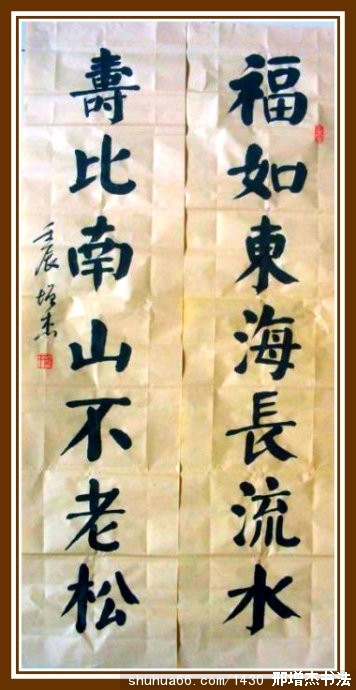 福如東海長流水
壽比南山不老松
壬辰增杰
shuhua66.com/1430 邢增杰书法